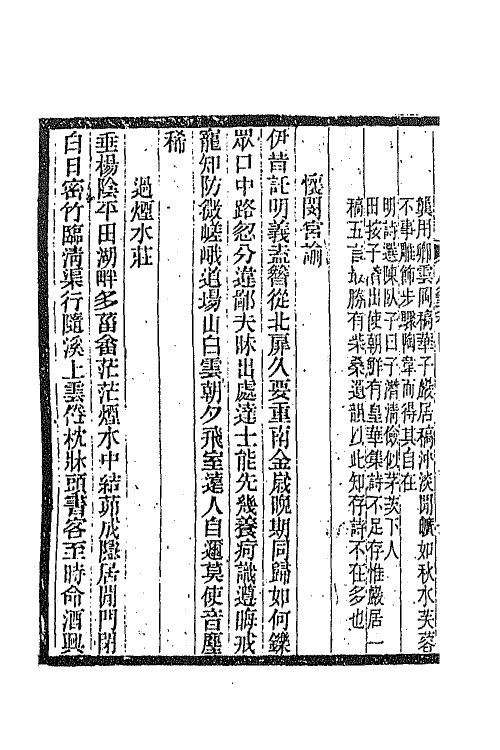 龔用卿雲岡稿華子嚴居稿沖淡閒曠如秋水芙蓉
不事雕飾步驟陶韋而得其自在
明詩選陳臥子曰子潛清儉似茅茨下人
田按子潛出使朝鮮有皇華集詩不足存惟嚴居一
稿五言最勝有柴桑遺韻以此知存詩不在多也
慨閔宮諭
伊昔証明義盍簪從北扉久要重南金歲晚期同歸如何鑠
眾口中路忽分違鄙夫昧出處達士能先幾養疴識遵晦戒
寵知防微嵯峨道場山白雲朝夕飛室邇人自遠莫使音塵
稀
過煙水莊
垂楊陰平田湖畔多菑畬茫茫煙水中結茆成隱居閒門閉
白日密竹臨清渠行隨溪上雲倦枕牀頭書客至時命酒興